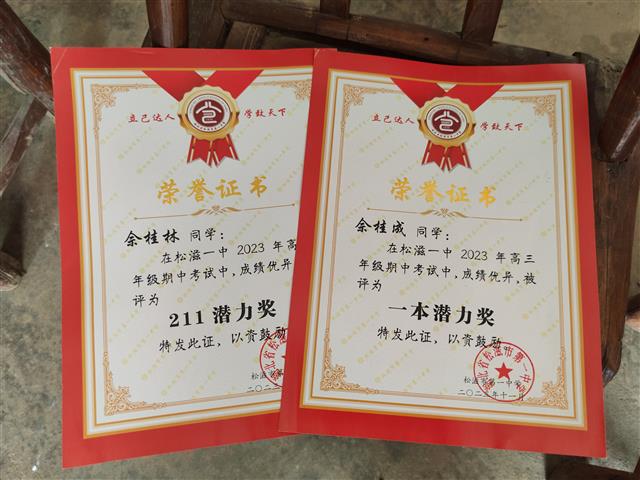 立己达人 学致天下
荣誉证书
余桂林 同学：
在松滋一中 2023 年高
年级期中考试中，成绩优异
评为
211 潜力奖
特发此证，以资鼓励
湖北省松滋
松滋市第
二〇二
立己达人 学致天下
荣誉证书
余桂成 同学：
在松滋一中 2023 年高三
年级期中考试中，成绩优异，被
评为
一本潜力奖
特发此证，以资鼓励。
北省松滋市第一中学
松滋市第一中学
二〇二三年十一月